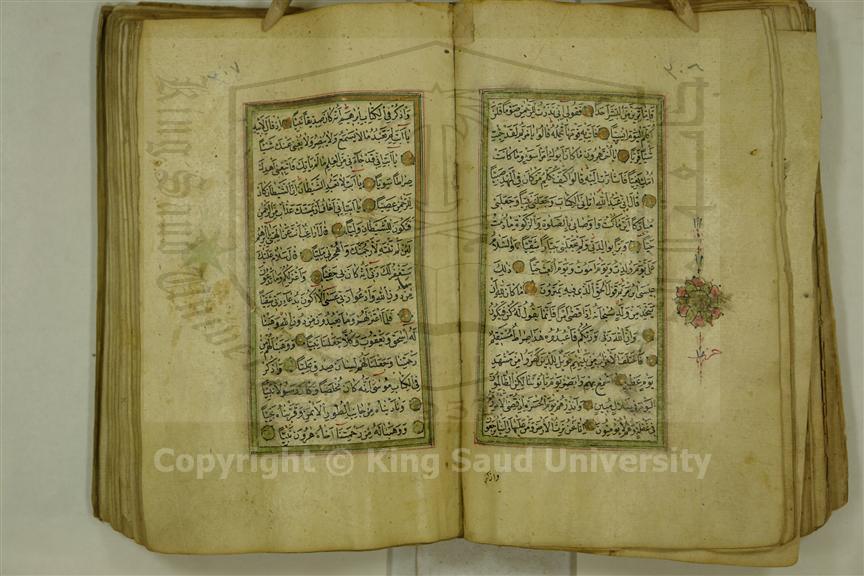 ٢٠٦
فَإِمَّا تَرَيِنَّ مِنَ الْبَشَرِ أَحَدًا فَقُولِي إِنِّي نَذَرْتُ لِلرَّحْمَنِ صَوْمًا فَلَنْ
أُكَلِّمَ الْيَوْمَ إِنْسِيًّا فَأَتَتْ بِهِ قَوْمَهَا تَحْمِلُهُ قَالُوا يَا مَرْيَمُ لَقَدْ جِئْتِ
شَيْئًا فَرِيًّا يَا أُخْتَ هَرُونَ مَا كَانَ أَبُوكِ امْرَأَ سَوْءٍ وَمَا كَانَتْ
أُمُّكِ بَغِيًّا فَأَشَارَتْ إِلَيْهِ قَالُوا كَيْفَ نُكَلِّمُ مَنْ كَانَ فِي الْمَهْدِ صَبِيًّا
قَالَ إِنِّي عَبْدُ اللَّهِ آتَانِيَ الْكِتَابَ وَجَعَلَنِي نَبِيًّا وَجَعَلَنِي
مُبَارَكًا أَيْنَ مَا كُنْتُ وَأَوْصَانِي بِالصَّلَوةِ وَالزَّكَوةِ مَا دُمْتُ
حَيًّا وَبَرًّا بِوَالِدَتِي وَلَمْ يَجْعَلْنِي جَبَّارًا شَقِيًّا وَالسَّلَامُ
عَلَيَّ يَوْمَ وُلِدْتُ وَيَوْمَ أَمُوتُ وَيَوْمَ أُبْعَثُ حَيًّا ذَلِكَ
عِيسَى ابْنُ مَرْيَمَ قَوْلَ الْحَقِّ الَّذِي فِيهِ يَمْتَرُونَ مَا كَانَ لِلَّهِ أَنْ
يَتَّخِذَ مِنْ وَلَدٍ سُبْحَانَهُ إِذَا قَضَى أَمْرًا فَإِنَّمَا يَقُولُ لَهُ كُنْ فَيَكُونُ
وَإِنَّ اللَّهَ رَبِّي وَرَبُّكُمْ فَاعْبُدُوهُ هَذَا صِرَاطٌ مُسْتَقِيمٌ
فَاخْتَلَفَ الْأَحْزَابُ مِنْ بَيْنِهِمْ فَوَيْلٌ لِلَّذِينَ كَفَرُوا مِنْ مَشْهَدِ
يَوْمٍ عَظِيمٍ أَسْمِعْ بِهِمْ وَأَبْصِرْ يَوْمَ يَأْتُونَنَا لَكِنِ الظَّالِمُونَ
الْيَوْمَ فِي ضَلَالٍ مُبِينٍ وَأَنْذِرْهُمْ يَوْمَ الْحَسْرَةِ إِذْ قُضِيَ الْأَمْرُ وَهُمْ
فِي غَفْلَةٍ وَهُمْ لَا يُؤْمِنُونَ إِنَّا نَحْنُ نَرِثُ الْأَرْضَ وَمَنْ عَلَيْهَا وَإِلَيْنَا يُرْجَعُونَ
واذكر
٢٠٧
وَاذْكُرْ فِي الْكِتَابِ إِبْرَهِيمَ إِنَّهُ كَانَ صِدِّيقًا نَبِيًّا إِذْ قَالَ لِأَبِيهِ
يَا أَبَتِ لِمَ تَعْبُدُ مَا لَا يَسْمَعُ وَلَا يُبْصِرُ وَلَا يُغْنِي عَنْكَ شَيْئًا
يَا أَبَتِ إِنِّي قَدْ جَاءَنِي مِنَ الْعِلْمِ مَا لَمْ يَأْتِكَ فَاتَّبِعْنِي أَهْدِكَ
صِرَاطًا سَوِيًّا يَا أَبَتِ لَا تَعْبُدِ الشَّيْطَانَ إِنَّ الشَّيْطَانَ كَانَ
لِلرَّحْمَنِ عَصِيًّا يَا أَبَتِ إِنِّي أَخَافُ أَنْ يَمَسَّكَ عَذَابٌ مِنَ الرَّحْمَنِ
فَتَكُونَ لِلشَّيْطَانِ وَلِيًّا قَالَ أَرَاغِبٌ أَنْتَ عَنْ آلِهَتِي يَا إِبْرَهِيمُ
لَئِنْ لَمْ تَنْتَهِ لَأَرْجُمَنَّكَ وَاهْجُرْنِي مَلِيًّا قَالَ سَلَامٌ عَلَيْكَ
سَأَسْتَغْفِرُ لَكَ رَبِّي إِنَّهُ كَانَ بِي حَفِيًّا وَأَعْتَزِلُكُمْ وَمَا تَدْعُونَ
مِنْ دُونِ اللَّهِ وَأَدْعُوا رَبِّي عَسَى أَلَّا أَكُونَ بِدُعَاءِ رَبِّي شَقِيًّا
فَلَمَّا اعْتَزَلَهُمْ وَمَا يَعْبُدُونَ مِنْ دُونِ اللَّهِ وَهَبْنَا
لَهُ إِسْحَقَ وَيَعْقُوبَ وَكُلًّا جَعَلْنَا نَبِيًّا وَوَهَبْنَا لَهُمْ مِنْ
رَحْمَتِنَا وَجَعَلْنَا لَهُمْ لِسَانَ صِدْقٍ عَلِيًّا وَاذْكُرْ
فِي الْكِتَابِ مُوسَى إِنَّهُ كَانَ مُخْلَصًا وَكَانَ رَسُولًا نَبِيًّا
وَنَادَيْنَاهُ مِنْ جَانِبِ الطُّورِ الْأَيْمَنِ وَقَرَّبْنَاهُ نَجِيًّا
وَوَهَبْنَا لَهُ مِنْ رَحْمَتِنَا أَخَاهُ هَرُونَ نَبِيًّا
Copyright © King Saud University